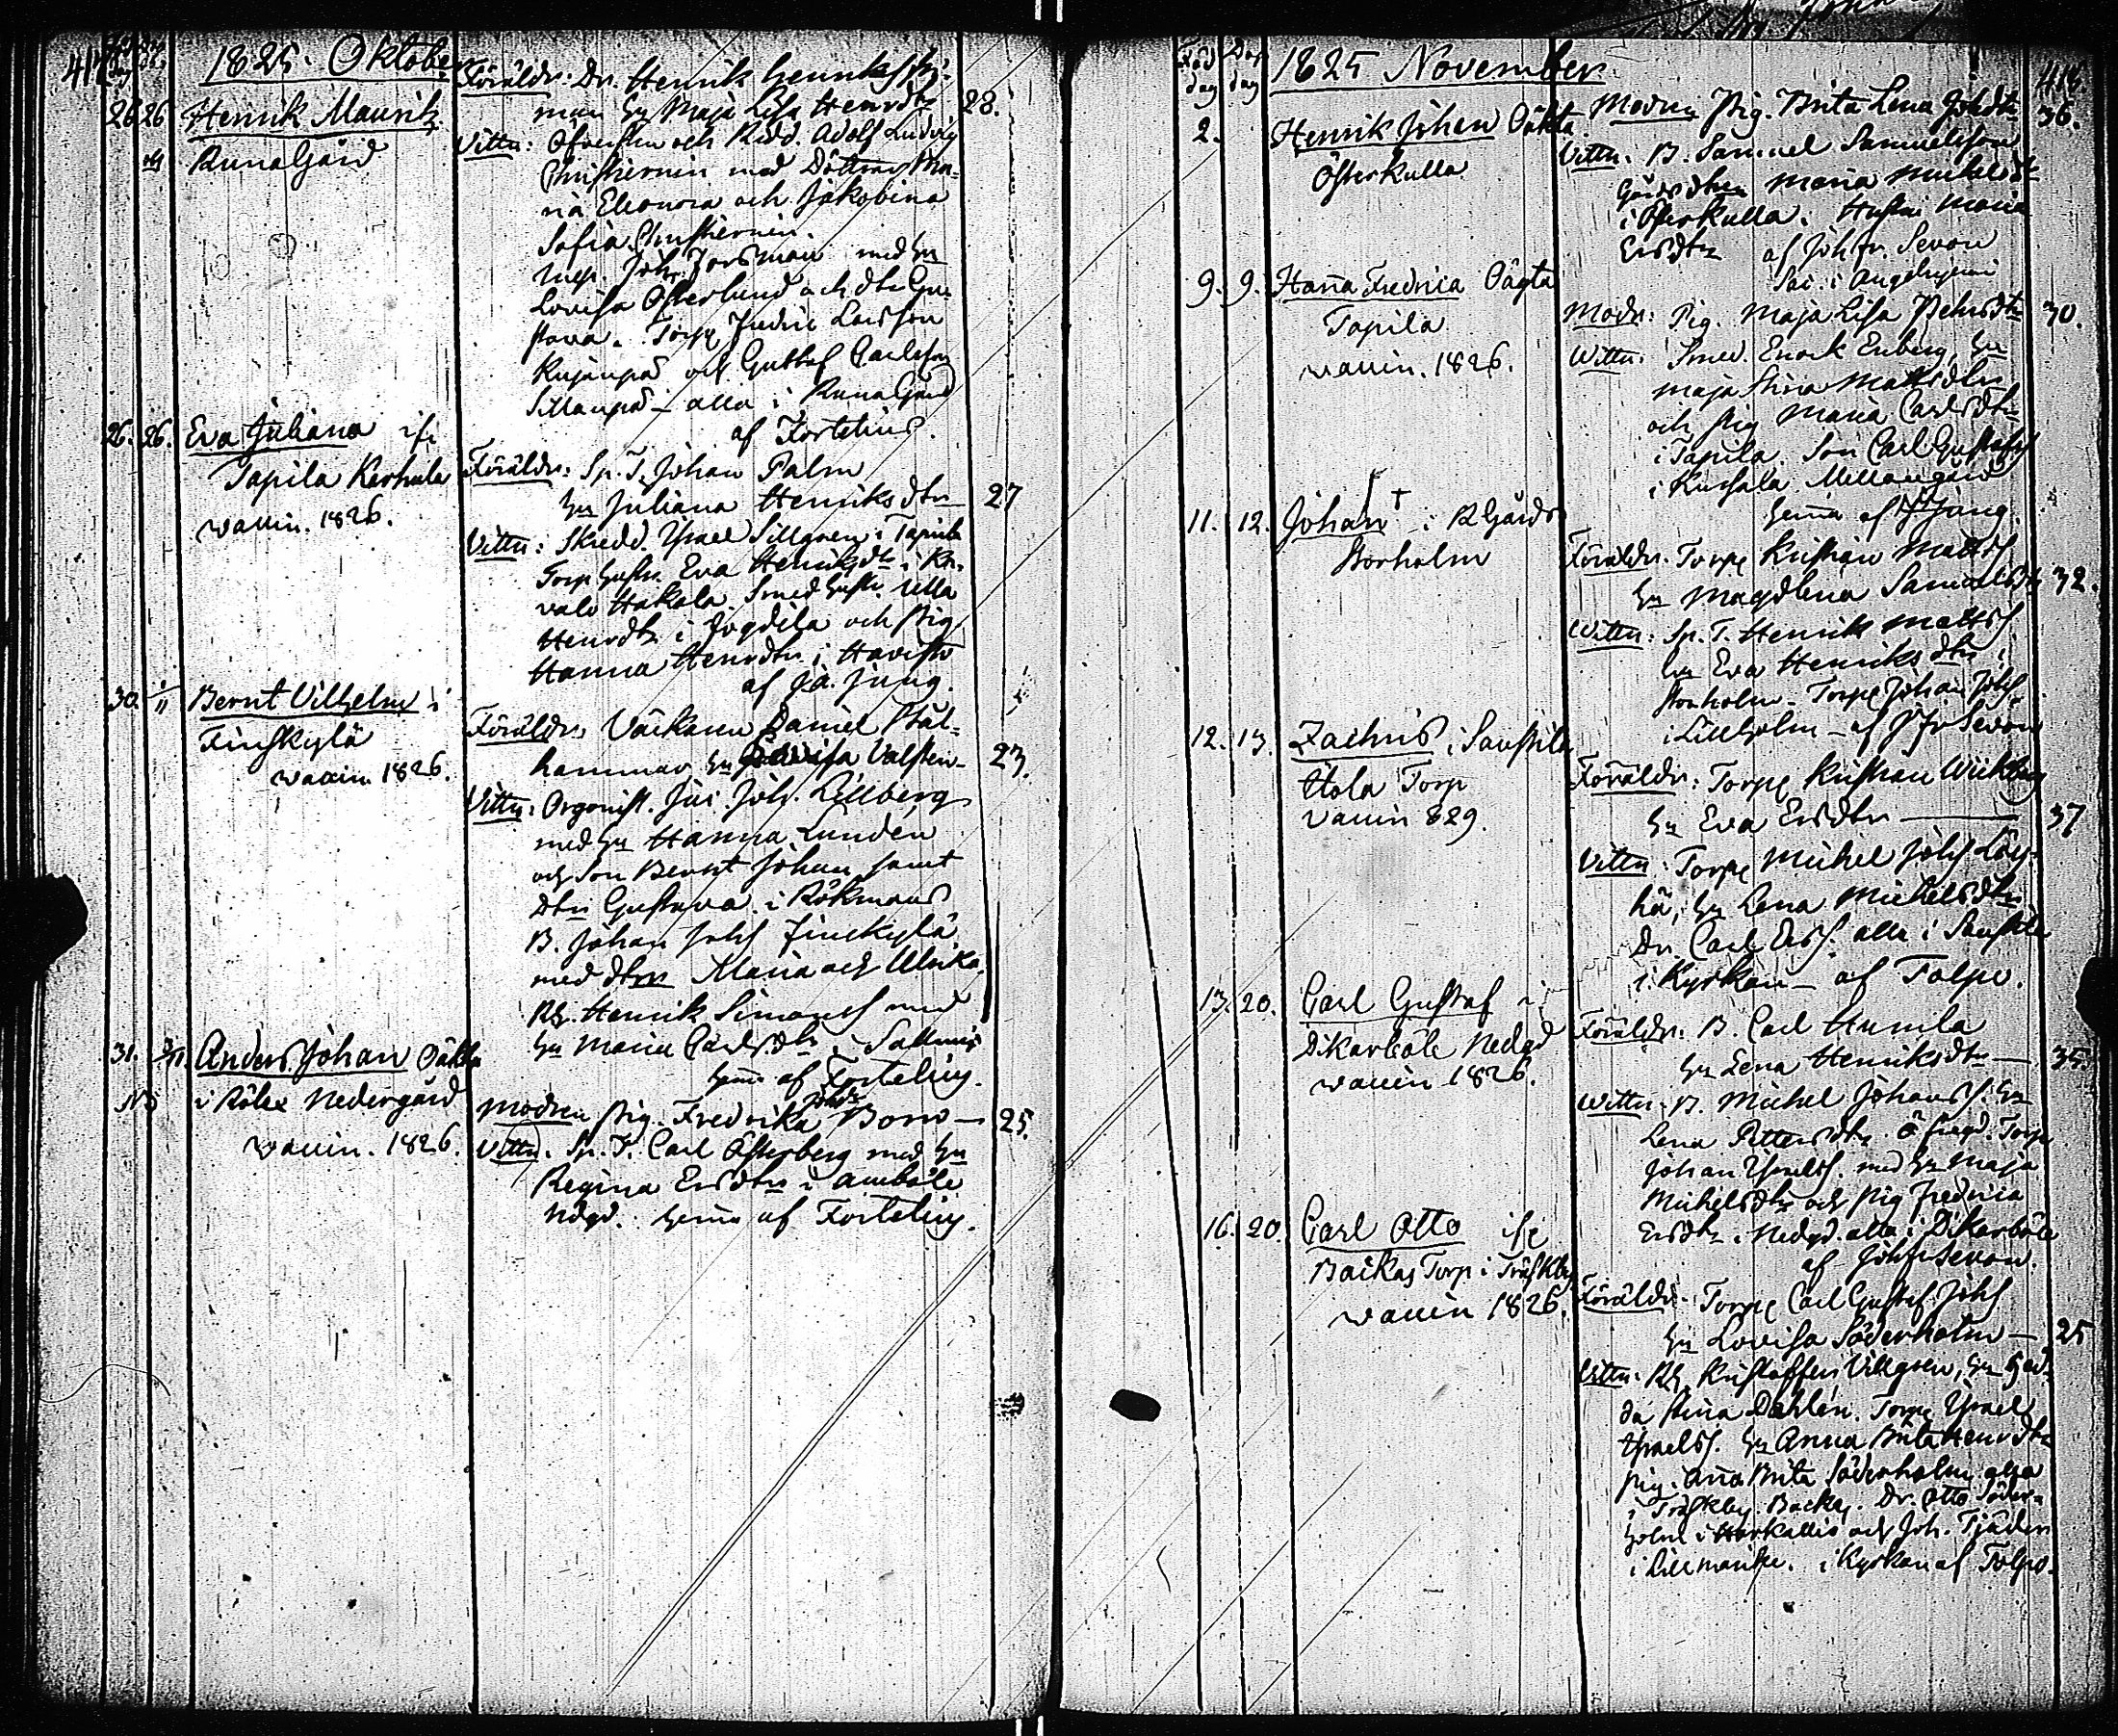 1825. Oktober
26 26 Henrik Mauritz
Runagård
Föräldr: Dr. Henrik
man Hu Maja Lisa Henrdtr 28.
Vittn: Öfversten och Ridd. Adolf Ludvig
Christiernin med Döttrar Ma-
ria Eleonora och Jakobina
Sofia Christiernin.
Joh. Forsman med Hu
Lovisa Österlund och dtr Gu-
stava. Torp Fredric Larsson
och Gustaf Carlsson
alla i Runagård
af Fortelius.
26. 26. Eva Juliana
Tapila Karhula
vaccin. 1826.
Föräldr: Sp. T. Johan Palm
Hu Juliana Henriksdtr 27
Vittn: Skredd. Israel Sillgren i Tapila
Torp hustr. Eva Henriksdtr i
Hakala. Smed hustr. Ulla
Henrdtr i och Pig.
Hanna Henrdtr i Havisto
af J.A. Jung.
30. 1/11 Bernt Vilhelm i
Finskylä
vaccin 1826.
Föräldr. Väckaren Daniel Stål-
hammar Hu Lovisa Valsten 23.
Vittn: Organist. Joh. Lillberg
med Hu Hanna Lunden
och Son Bernt Johan samt
Dtr Gustava i Rökmans
B. Johan Johss Finskylä
med dtrn Maria och Ulrika.
Rh. Henrik Simonss med
Hu Maria Carlsdtr i
hema af Fortelius.
31. 3/11. Anders Johan Oäkta
i Nedergård
vaccin. 1826.
Modren Pig. Fredrika Johdr Born — 25.
Vittn. Sp. T. Carl Österberg med Hu
Regina Ersdtr i Ambåle
Ndgd. hema af Fortelius.
Född dag Döp dag
1825 November
2. Henrik Johan Oäkta
Österkulla
Modren Pig. Brita Lena Johdtr 36.
Vittn. B. Samuel Samuelsson
Gårdsdtren Maria Michelsdr
i Österkulla. Hustru Maria
Ersdtr af Joh. Fr. Sevon
Sac. i
9. 9. Hanna Fredrica Oägta
Tapila
vaccin. 1826.
Modr: Pig. Maja Lisa Pehrsdtr 30.
Wittn: Smed. Enock Enberg, Hu
Maja Stina Mattsdtr
och Pig Maria Carlsdtr
i Tapila. Son Carl Gustafss
i Kussala Mellangård
hema af J. Jung.
11. 12. Johan † i R Gårds
Storholm
Föräldr. Torp Kristian Mattss
Hu Magdlena Samuelsdtr 32.
Wittn: Sp. T. Henrik Mattss
Hu Eva Henriksdtr i
Storholm. Torp Johan Johss
i Lillholm — af J Fr Sevon
12. 13. Zachris i
Hola Torp
vaccin 829.
Föräldr: Torp Kristian Wickberg
Hu Eva Ersdtr — 37
Vittn: Torp Michel Johss
Hu Lena Michelsdtr
Dr. Carl Erss. alla i
i Kyrkan — af Tolpo.
13. 20. Carl Gustaf i
Dikarbåle Nedgd
vaccin 1826.
Föräldr: B. Carl Hunila
Hu Lena Henriksdtr — 35.
Wittn. B. Michel Johanss. Hu
Lena Pettersdtr. Öfvegd. Torp
Johan Israelss. med Hu Maja
Michelsdtr och Pig Fredrica
Ersdtr. Nedgd. alla i Dikarbåle
af Joh Fr Sevon.
16. 20. Carl Otto
Backas Torp i Träskby
vaccin 1826.
Föräldr. Torp Carl Gustaf Johss
Hu Lovisa Söderholm — 25
Vittn. Rh Kristoffer Villgren, Hu Hed-
da Stina Dahlen. Torp Israel
Israelss. Hu Anna Brita Henrdtr
Pig. Anna Brita Söderholm alla
i Träskby Backas. Dr. Otto Söder-
holm i och Joh. Tjäder
i i Kyrkan af Tolpo.